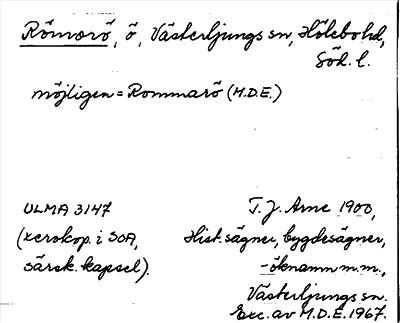 Römorö, ö, Västerljungs sn, Hölebo hd,
Söd. l.
möjligen = Rommarö (M.D.E.)
ULMA 3147
(xerokop. i SOA,
särsk. kapsel).
T. J. Arne 1900,
Hist. sägner, bygdesägner,
-öknamn m.m.,
Västerljungs sn.
Exc. av M.D.E. 1967.